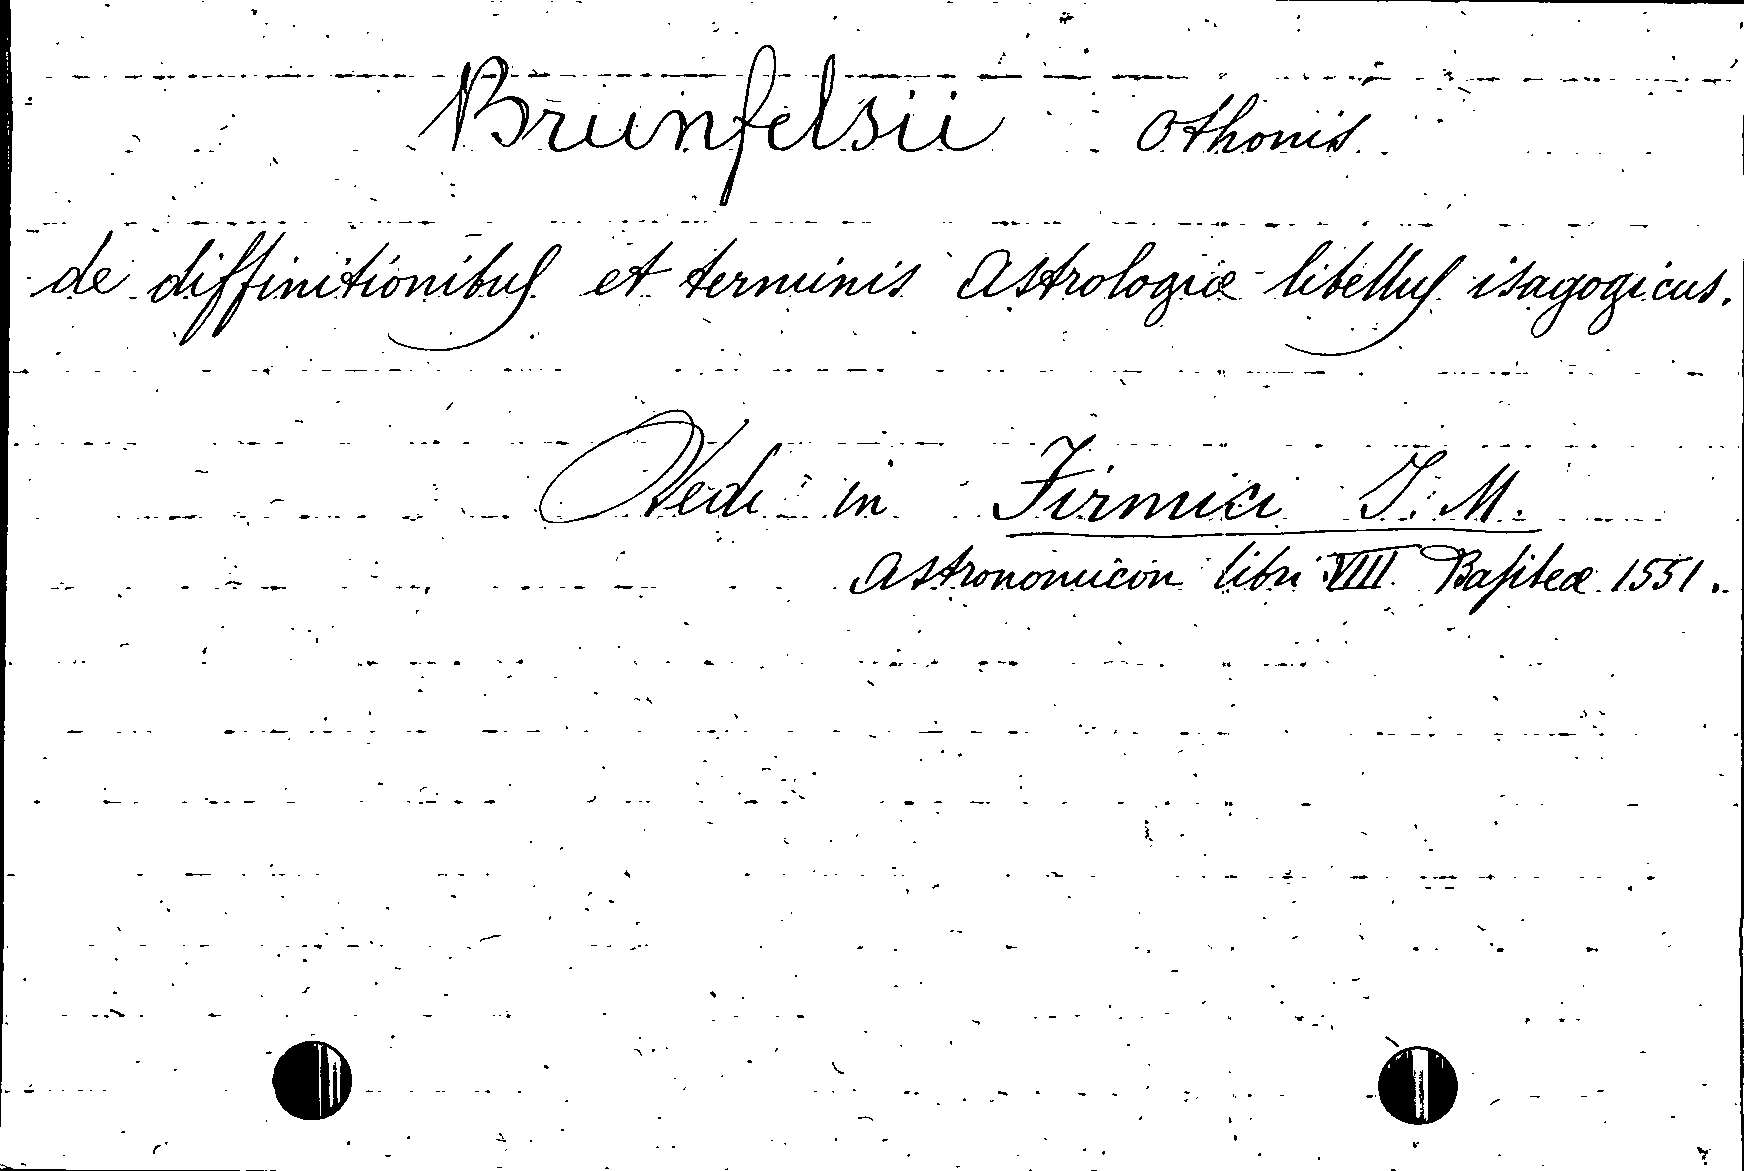 Brunfelsii Othonis
de diffinitionibus et terminis Astrologiæ libellus isagogicus.
Vedi in Firmici J. M.
Astronomicon libri VIII. Basileæ 1551.